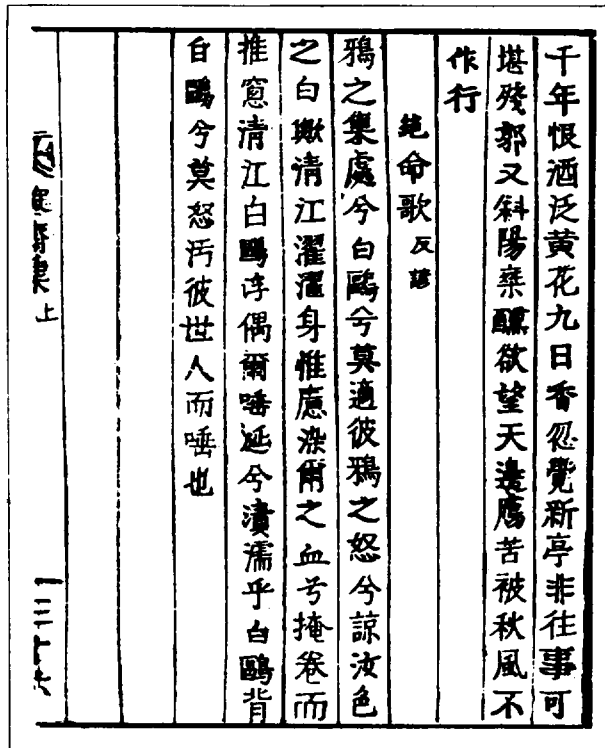 千年恨酒泛黄花九日香忽覺新亭非往事可
堪殘郭又斜陽乘醺欲望天邊鴈苦被秋風不
作行
絶命歌 反諺
鴉之集處兮白鷗兮莫適彼鴉之怒兮諒汝色
之白歟清江濯濯身惟慮染爾之血兮掩卷而
推窓清江白鷗浮偶爾唾涎兮漬濡乎白鷗背
白鷗兮莫怒汚彼世人而唾也
齋集上